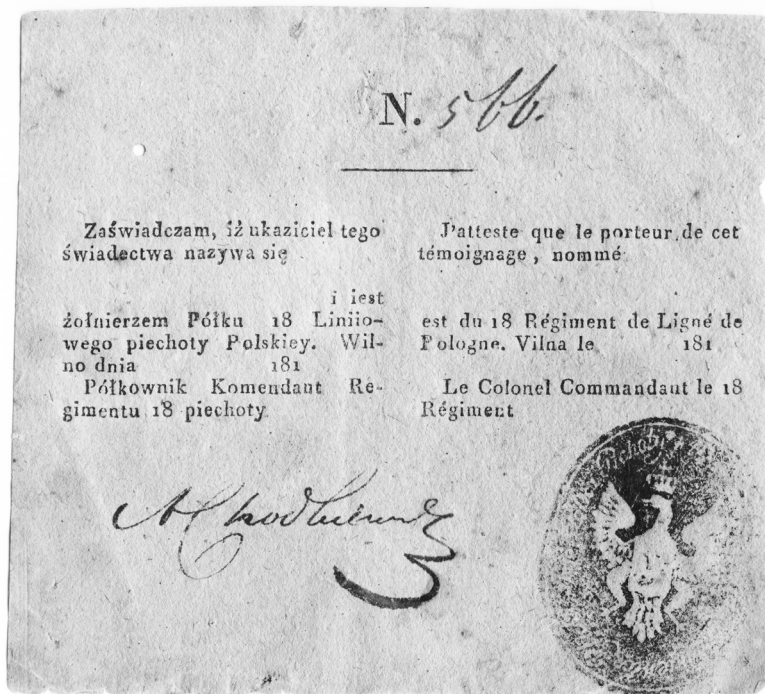 N. 566.
Zaświadczam, iż ukaziciel tego
świadectwa nazywa się
i iest
żołnierzem Półku 18 Liniio-
wego piechoty Polskiey. Wil-
no dnia 181
Półkownik Komendant Re-
gimentu 18 piechoty
J'atteste que le porteur de cet
témoignage, nommé
est du 18 Régiment de Ligné de
Pologne. Vilna le 181
Le Colonel Commandant le 18
Régiment